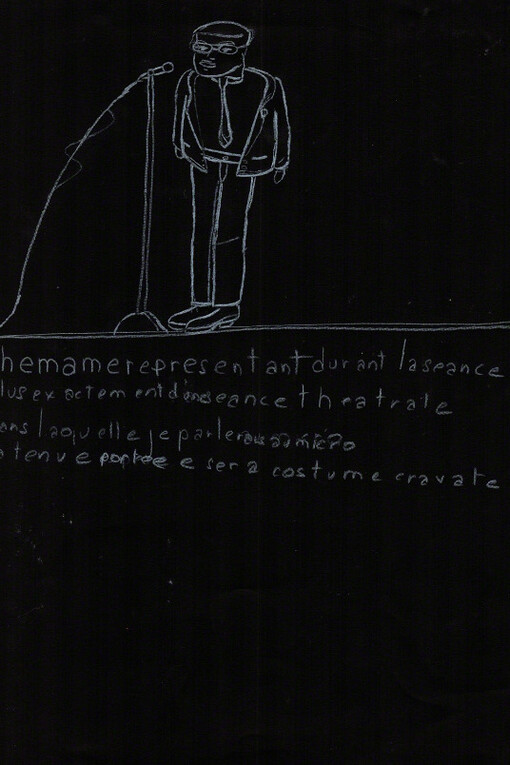 hemamerepresentant durant laseance
lusexactement d'uneseance theatrale
ans laquelle je parlerais au micro
tenue portée sera costume cravate